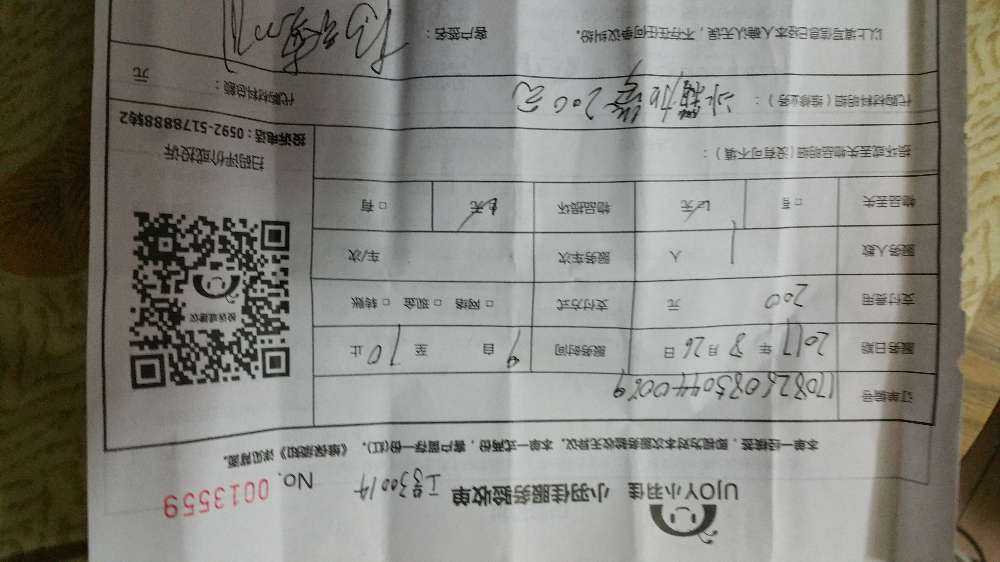 UJOY小羽佳 小羽佳服务验收单 工号30014 No. 0013559
本单一经核签，即视为对本次服务验收无异议。本单一式两份，客户留存一份(红)。《维保须知》详见背面。
订单编号 170826083044000
服务日期 2017 年 8 月 26 日 服务时间 9 自 至 10 止
支付费用 200 元 支付方式 □ 网络 □ 现金 □ 转账
服务人数 1 人 服务车次 车/次
物品丢失 □ 有 ☑ 无 物品损坏 ☑ 无 □ 有
投诉或建议
扫码评价或投诉
投诉电话：0592-5178888转2
损坏或丢失物品明细(没有可不填)：
代购材料明细(维修业务)：冰箱加 200元
代购材料总额： 元
以上填写信息已经本人确认无误，不存在任何争议纠纷。 客户签名：